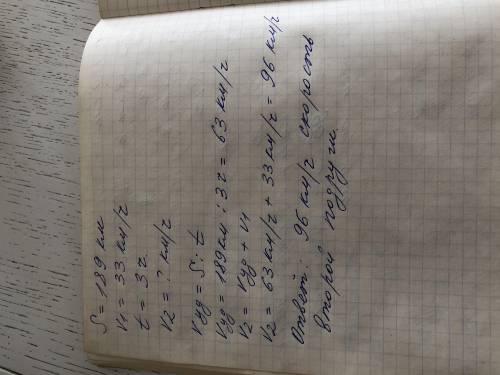 S = 189 км
V1 = 33 км/ч
t = 3 ч
V2 = ? км/ч
Vуд = S : t
Vуд = 189 км : 3 ч = 63 км/ч
V2 = Vуд + V1
V2 = 63 км/ч + 33 км/ч = 96 км/ч
Ответ: 96 км/ч скорость
второй подруги.